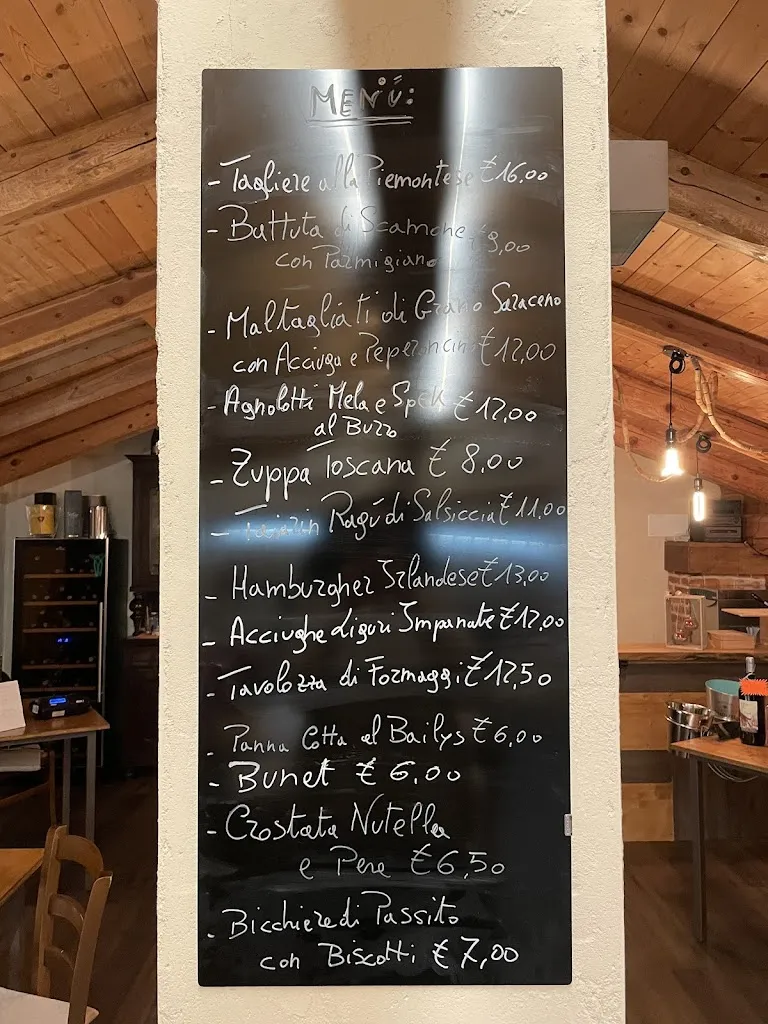 MENÙ:
- Tagliere alla Piemontese € 16,00
- Battuta di Scamone € 9,00
con Parmigiano
- Maltagliati di Grano Saraceno
con Acciuga e Peperoncino € 12,00
- Agnolotti Mela e Speck € 12,00
al Burro
- Zuppa Toscana € 8,00
- Tajarin Ragú di Salsiccia € 11,00
- Hamburgher Irlandese € 13,00
- Acciughe Liguri Impanate € 12,00
- Tavolozza di Formaggi € 12,50
- Panna Cotta al Bailys € 6,00
- Bunet € 6,00
- Crostata Nutella
e Pere € 6,50
- Bicchiere di Passito
con Biscotti € 7,00